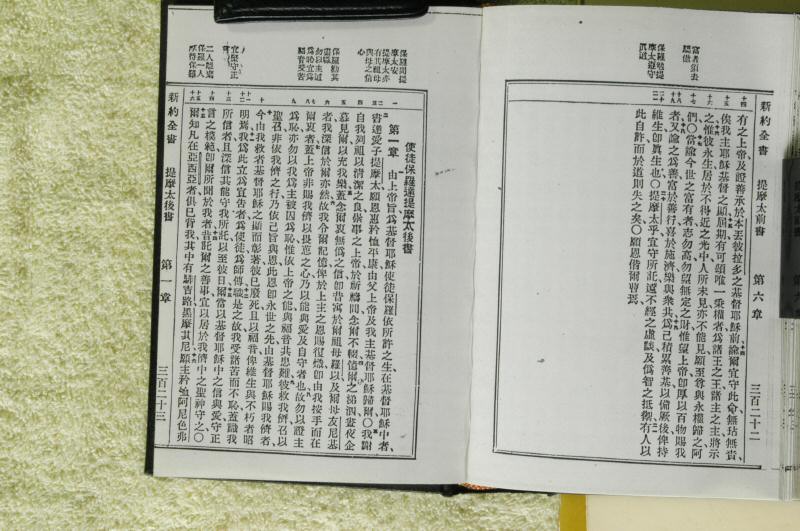 富者須去
驕傲
保羅戒提
摩太遵守
眞道
新約全書
提摩太前書
第六章
三百二十二
有之上帝及證善承於本丟彼拉多之基督耶穌前諭爾宜守此命無玷無責
俟我主耶穌基督之顯屆期有可頌唯一秉權者爲諸王之王諸主之主將示
之惟彼永生居於不得近之光中人所未見亦不能見願至尊與永權歸之阿
們〇當諭今世之富有者志勿高勿望無定之財惟望上帝卽厚以百物賜我
者又諭之爲善富於善行喜於施濟樂與衆共爲己積累善基以備厥後俾持
維生卽眞生也〇提摩太乎宜守所託遠不經之虛談及僞智之抵禦有人以
此自許而於道則失之矣〇願恩偕爾曹焉
保羅問提
摩太安
提摩太亦
有其祖母
與母之信
心
保羅勸其
勿以主道
爲恥宜爲
福音受苦
宜堅守正
二人離棄
保羅一人
厚待保羅
使徒保羅達提摩太後書
第一章 由上帝旨爲基督耶穌使徒保羅依所許之生在基督耶穌中者
書達愛子提摩太願恩惠矜恤平康由父上帝及我主基督耶穌歸爾〇我謝
自我列祖以清潔之良崇事之上帝於祈禱間念爾不輟憶爾之涕泗晝夜企
慕見爾以充我樂蓋念爾衷無僞之信卽昔寓於爾祖母羅以及爾母友尼基
者我深信於爾亦然故我令爾記憶俾於上主之恩賜復熾卽由我按手而在
爾衷者蓋上帝非賜我儕以畏葸之心乃以能與愛及自守者也故勿以證主
爲恥亦勿以我爲主被囚爲恥惟依上帝之能與福音共患難彼救我儕召以
聖召非依我儕之行乃依己旨與恩此恩卽永世之先由基督耶穌賜我儕者
今由我救者基督耶穌之顯而彰著彼已廢死且以福音俾維生與不朽者昭
明焉我爲此立爲宣告者爲使徒爲師傅職是之故我受諸苦而不恥蓋識我
所信者且深信其能守我所託以至彼日爾當以基督耶穌中之信與愛守正
言之模範卽爾所聞於我者昔託爾之善事宜以居於我儕中之聖神守之〇
爾知凡在亞西亞者俱已背我其中有腓吉路黑摩其尼願主矜恤阿尼色弗
新約全書
提摩太後書
第一章
三百二十三